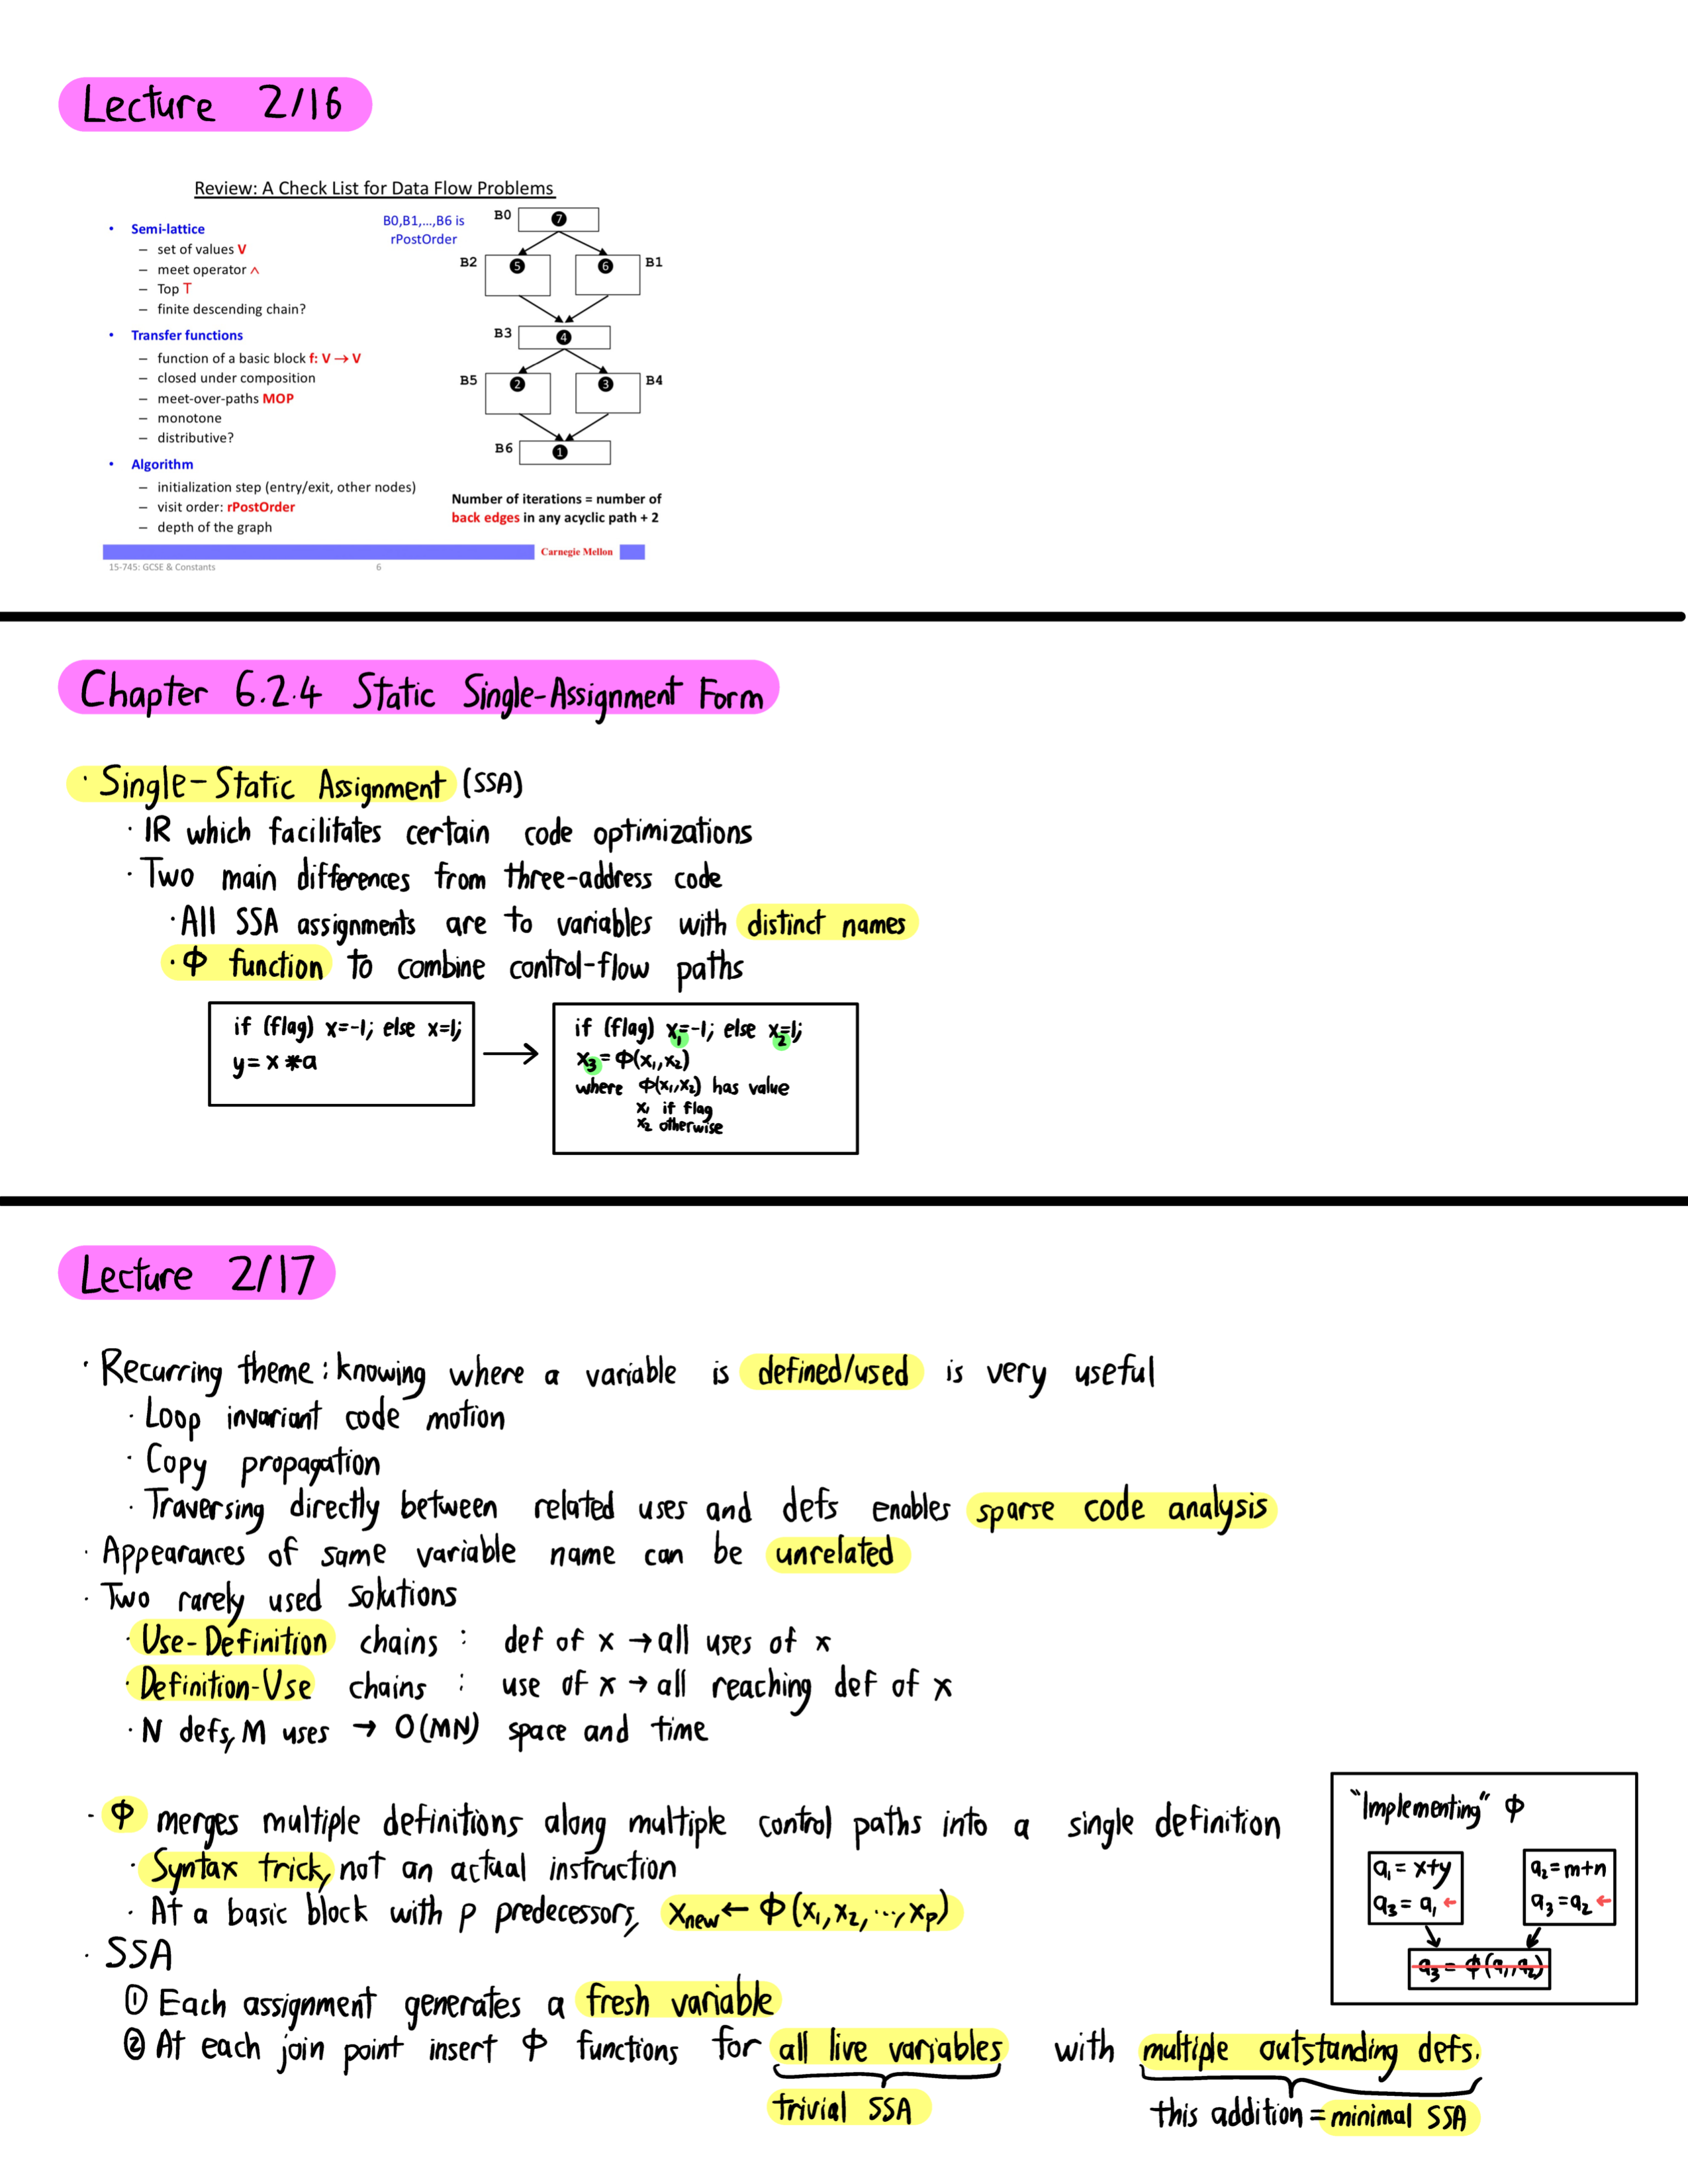 Lecture 2/16
Review: A Check List for Data Flow Problems
• Semi-lattice
– set of values V
– meet operator ∧
– Top T
– finite descending chain?
• Transfer functions
– function of a basic block f: V → V
– closed under composition
– meet-over-paths MOP
– monotone
– distributive?
• Algorithm
– initialization step (entry/exit, other nodes)
– visit order: rPostOrder
– depth of the graph
B0,B1,...,B6 is
rPostOrder
B0 7
B2 5 6 B1
B3 4
B5 2 3 B4
B6 1
Number of iterations = number of
back edges in any acyclic path + 2
Carnegie Mellon
15-745: GCSE & Constants 6
Chapter 6.2.4 Static Single-Assignment Form
· Single-Static Assignment (SSA)
· IR which facilitates certain code optimizations
· Two main differences from three-address code
· All SSA assignments are to variables with distinct names
· Φ function to combine control-flow paths
if (flag) x=-1; else x=1;
y=x*a
if (flag) x₁=-1; else x₂=1;
x₃=Φ(x₁,x₂)
where Φ(x₁,x₂) has value
x₁ if flag
x₂ otherwise
Lecture 2/17
· Recurring theme: knowing where a variable is defined/used is very useful
· Loop invariant code motion
· Copy propagation
· Traversing directly between related uses and defs enables sparse code analysis
· Appearances of same variable name can be unrelated
· Two rarely used solutions
· Use-Definition chains : def of x → all uses of x
· Definition-Use chains : use of x → all reaching def of x
· N defs, M uses → O(MN) space and time
- Φ merges multiple definitions along multiple control paths into a single definition
· Syntax trick, not an actual instruction
· At a basic block with p predecessors, x_new ← Φ(x₁, x₂, ..., x_p)
· SSA
① Each assignment generates a fresh variable
② At each join point insert Φ functions for all live variables with multiple outstanding defs.
trivial SSA this addition = minimal SSA
"Implementing" Φ
a₁ = x+y
a₃ = a₁ ←
a₂ = m+n
a₃ = a₂ ←
a₃ = Φ(a₁,a₂)